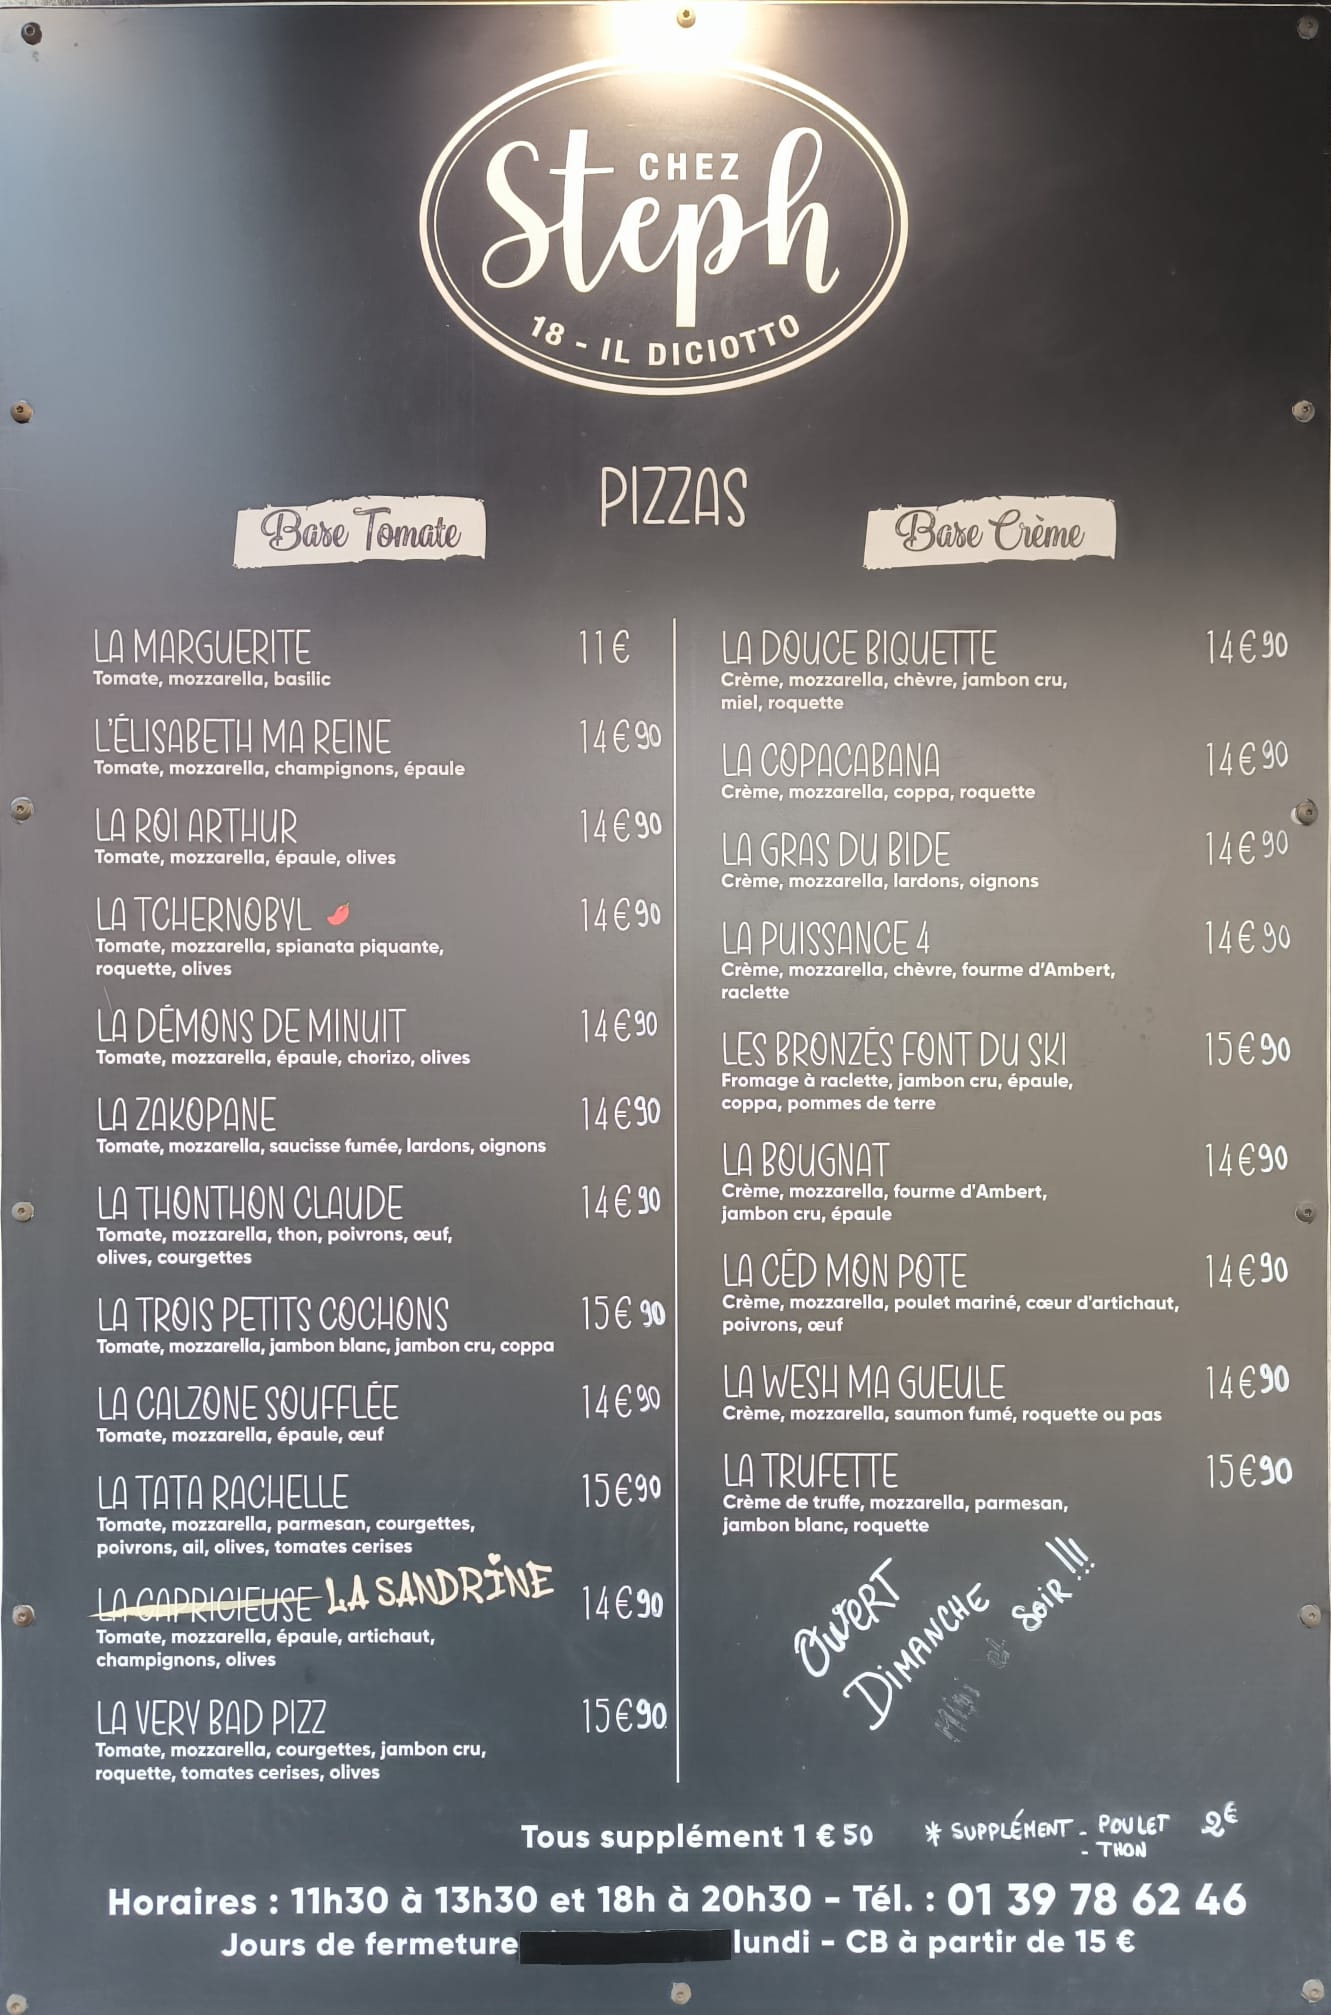 CHEZ
Steph
18 - IL DICIOTTO
PIZZAS
Base Tomate
LA MARGUERITE 11€
Tomate, mozzarella, basilic
L'ÉLISABETH MA REINE 14€90
Tomate, mozzarella, champignons, épaule
LA ROI ARTHUR 14€90
Tomate, mozzarella, épaule, olives
LA TCHERNOBYL 14€90
Tomate, mozzarella, spianata piquante,
roquette, olives
LA DÉMONS DE MINUIT 14€90
Tomate, mozzarella, épaule, chorizo, olives
LA ZAKOPANE 14€90
Tomate, mozzarella, saucisse fumée, lardons, oignons
LA THONTHON CLAUDE 14€90
Tomate, mozzarella, thon, poivrons, œuf,
olives, courgettes
LA TROIS PETITS COCHONS 15€90
Tomate, mozzarella, jambon blanc, jambon cru, coppa
LA CALZONE SOUFFLÉE 14€90
Tomate, mozzarella, épaule, œuf
LA TATA RACHELLE 15€90
Tomate, mozzarella, parmesan, courgettes,
poivrons, ail, olives, tomates cerises
LA CAPRICIEUSE LA SANDRINE 14€90
Tomate, mozzarella, épaule, artichaut,
champignons, olives
LA VERY BAD PIZZ 15€90
Tomate, mozzarella, courgettes, jambon cru,
roquette, tomates cerises, olives
Base Crème
LA DOUCE BIQUETTE 14€90
Crème, mozzarella, chèvre, jambon cru,
miel, roquette
LA COPACABANA 14€90
Crème, mozzarella, coppa, roquette
LA GRAS DU BIDE 14€90
Crème, mozzarella, lardons, oignons
LA PUISSANCE 4 14€90
Crème, mozzarella, chèvre, fourme d'Ambert,
raclette
LES BRONZÉS FONT DU SKI 15€90
Fromage à raclette, jambon cru, épaule,
coppa, pommes de terre
LA BOUGNAT 14€90
Crème, mozzarella, fourme d'Ambert,
jambon cru, épaule
LA CÉD MON POTE 14€90
Crème, mozzarella, poulet mariné, cœur d'artichaut,
poivrons, œuf
LA WESH MA GUEULE 14€90
Crème, mozzarella, saumon fumé, roquette ou pas
LA TRUFETTE 15€90
Crème de truffe, mozzarella, parmesan,
jambon blanc, roquette
OUVERT
DIMANCHE
SOIR !!!
Tous supplément 1 € 50
* SUPPLÉMENT - POULET 2€
- THON
Horaires : 11h30 à 13h30 et 18h à 20h30 - Tél. : 01 39 78 62 46
Jours de fermeture lundi - CB à partir de 15 €